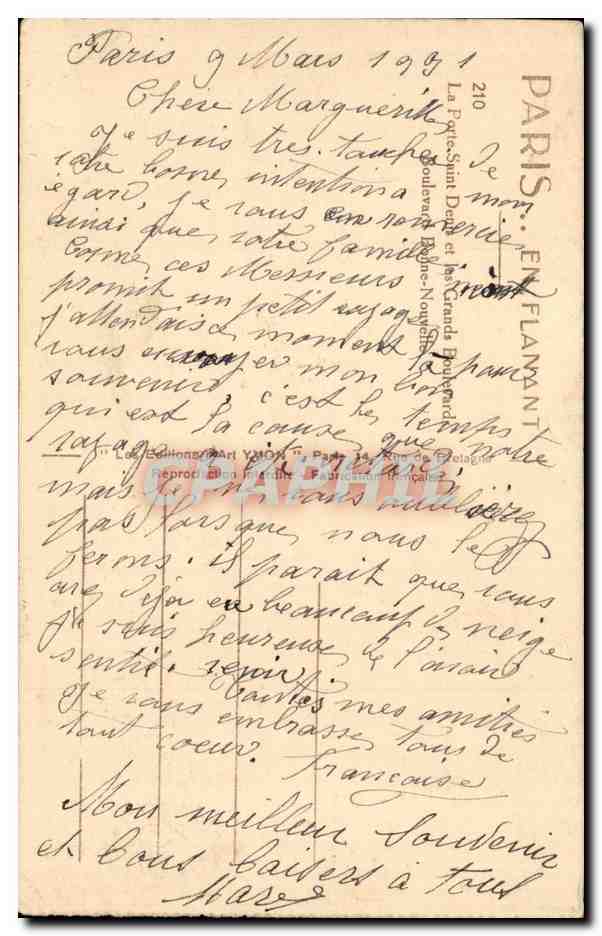 Paris 9 Mars 1931
Chère Marguerite
Je suis très touchée de
votre bonne intention à mon
égard, je vous en remercie,
ainsi que votre famille
Comme ces Messieurs m'ont
promit un petit voyage
j'attendais ce moment là pour
vous envoyer mon bon
souvenir, c'est le temps
qui est la cause que notre
voyage
mais je ne vous oublierez
pas lorsque nous le
ferons. il parait que vous
avez déja eu beaucoup de neige
je suis heureuse de l'avoir
sentit. venir.
toutes mes amitiés
Je vous embrasse tous de
tout coeur. Françoise
Mon meilleur Souvenir
et bons baisers à tous
210
La Porte-Saint Denis et les Grands Boulevards
Boulevard Bonne-Nouvelle
PARIS... EN FLANANT
"Les Editions d'Art YVON" - Paris 14, Rue de Bretagne
Reproduction interdite - Fabrication française
CPAPHIL